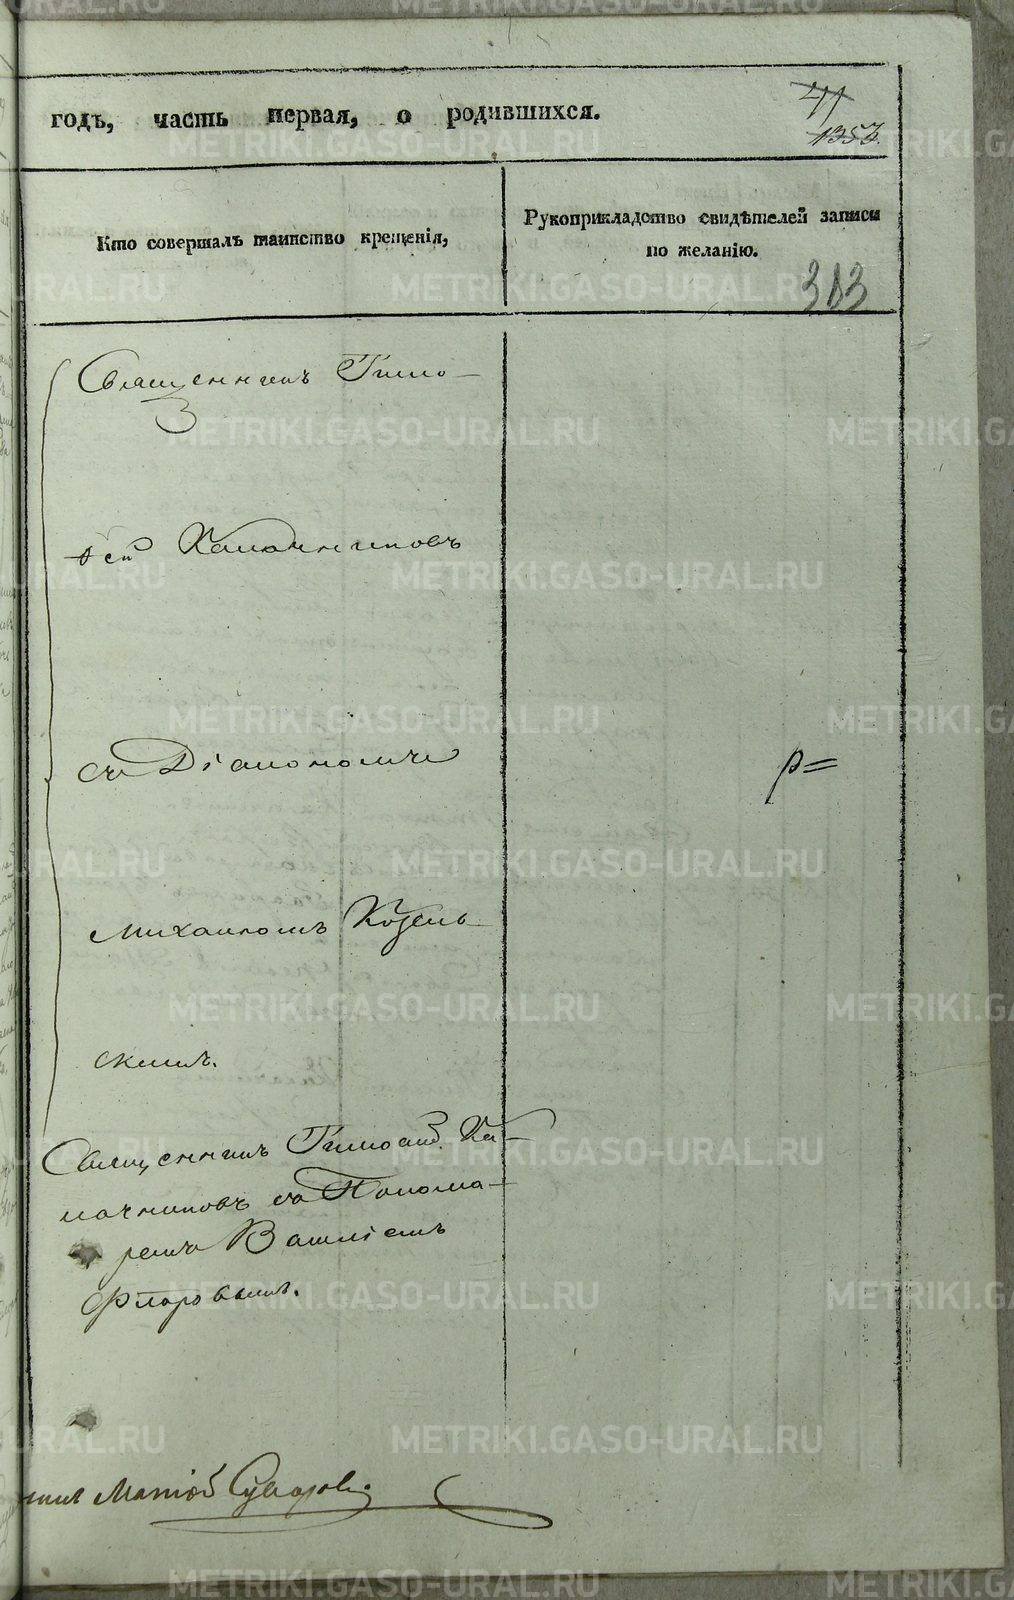 годъ, часть первая, о родившихся.
41
1357.
Кто совершалъ таинство крещенія,
Рукоприкладство свидѣтелей записи
по желанію.
313
Священникъ Тимо-
ѳей Калачниковъ
съ Діакономъ
Михаиломъ Козель-
скимъ.
Священникъ Тимоѳей Ка-
лачниковъ съ Понома-
ремъ Василіемъ
Флоровымъ.
Матвѣй Суворовъ
METRIKI.GASO-URAL.RU